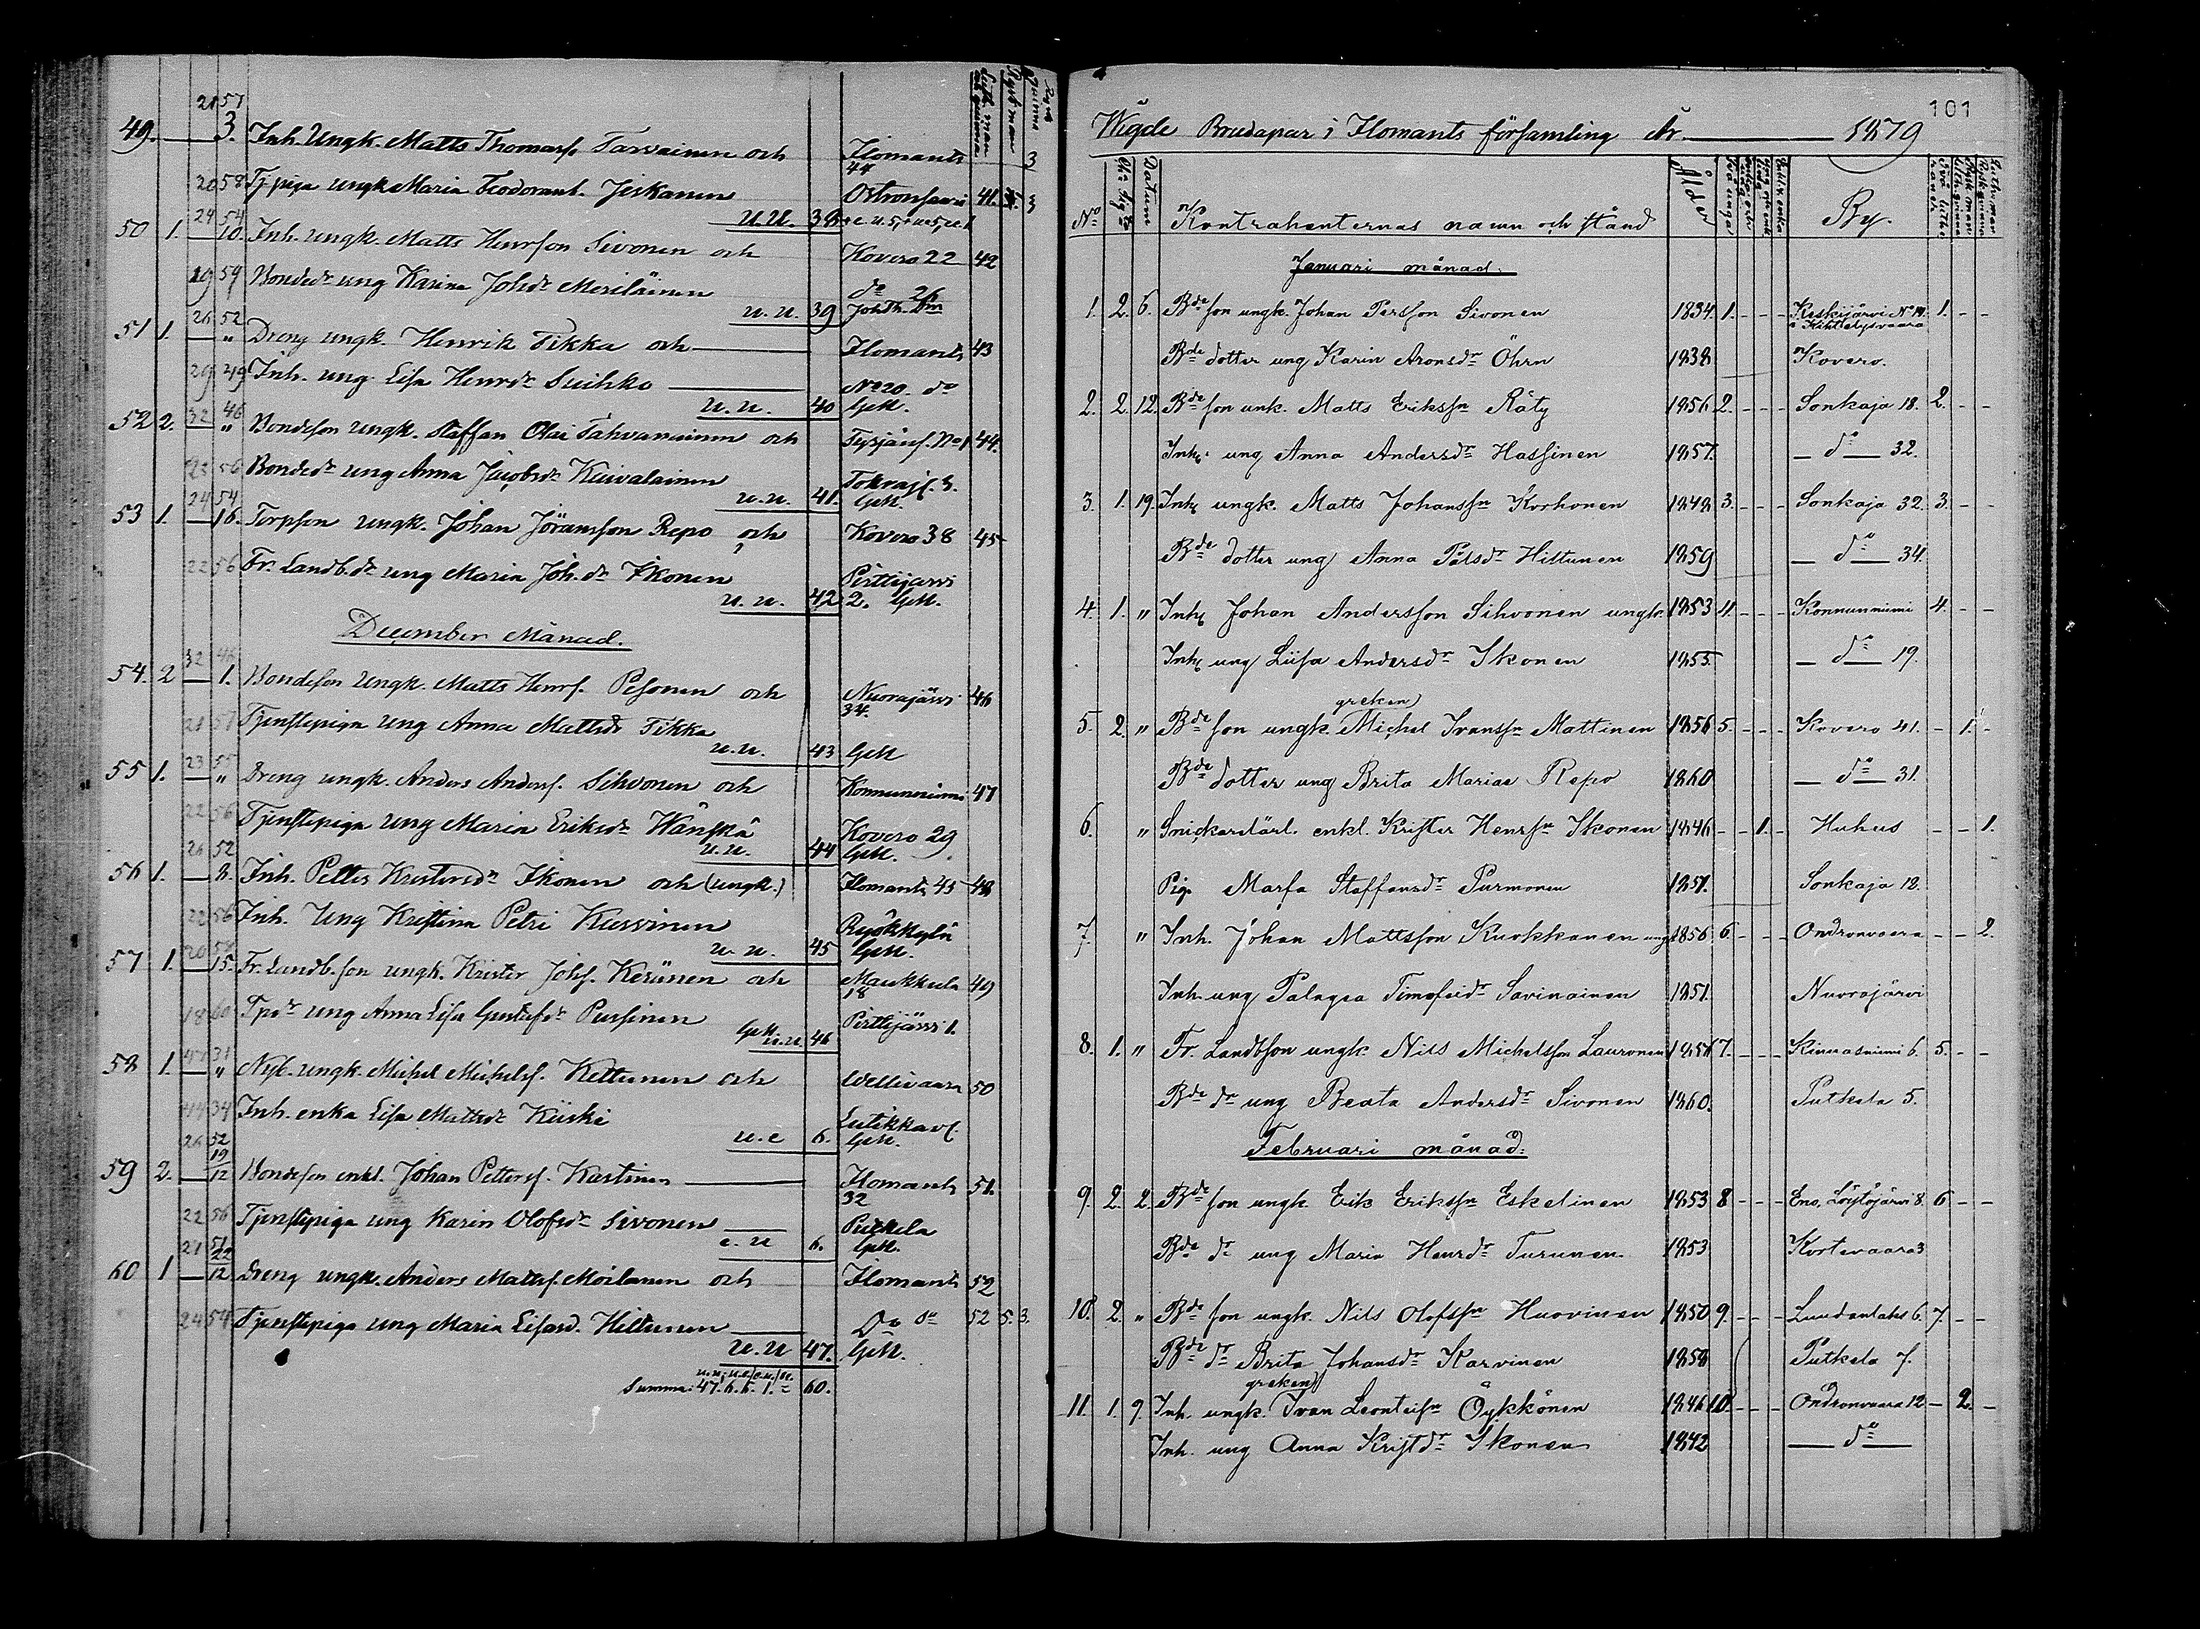 21 57
49. 3. Inh. Ungk. Matts Thomasss. Tarvainen och Ilomants 44 3
20 58 Tj piga ungk Maria Feodorant. Jeskanen 41.
u.u. 38
24 54
50 1. 10. Inh. ungk. Matts Henrsson Sivonen och Kovero 22 42
19 59 Bondedr ung Karina Johdr Meriläinen do 26
u.u. 39
26 52
51 1. " Dreng ungk. Henrik Tikka och Ilomants 43
29 49 Inh. ung Lisa Henrdr Suihko No 20. do
u.u. 40 GM.
32 46
52 2. " Bondeson Ungk. Staffan Olai Tahvanainen och No 1 44.
23 56 Bondedr ung Anna Jacobsdr Kaivalainen
u.u. 41. GM.
24 54
53 1. 16. Torpson ungk. Johan Jöransson Repo och Kovero 38 45
22 56 Fr. Landb. dr ung Maria Joh. dr Ikonen Pirttijärvi
u.u. 42 2. GM.
December Månad.
32 46
54. 2 1. Bondeson Ungk. Matts Henrs. Pesonen och Nuorajärvi 34. 46
21 57 Tjenstepiga Ung Anna Mattsdr Tikka
u.u. 43 GM
23 55
55 1. " Dreng ungk. Anders Anderss. Sihvonen och Konnunniemi 47
22 56 Tjenstepiga Ung Maria Eriksdr Hänskä Kovero 29
u.u. 44 GM.
26 52
56 1. 8. Inh. Petter Kristersdr Ikonen och (ungk.) Ilomants 45 48
22 56 Inh. Ung Kristina Petri Kurvinen Ryökkylä
u.u. 45 GM.
20 58
57 1. 15. Fr. Landb. son ungk. Krister Johs. Keränen och Maukkula 18 49
18 60 Tpdr ung Anna Lisa Gustafdr Pussinen Pirttijärvi 1.
GM u.u. 46
47 31
58 1. " Nyb. ungk. Michel Michelss. Kettunen och Wellivaara 50
44 34 Inh. enka Lisa Mattsdr Kiiski
u.e 6. GM.
26 52
59 2. 19/12 Bondeson enkl. Johan Petterss. Karttinen Ilomants 32 51.
22 56 Tjenstepiga ung Karin Olofsdr Sivonen Putkela
e.u 6. GM.
27 51
60 1 22/12 Dreng ungk. Anders Mattss. Moilanen och Ilomants 52
24 54 Tjenstepiga ung Maria Lisasd. Hiltunen Do do 52 5. 3.
u.u 47. GM.
u.u, u.e./e.u./ee.
Summa: 47. 6. 6. 1. = 60.
101
Wigde Brudapar i Ilomants församling År 1879
No Datum Kontrahenternas namn och stånd Ålder By.
Januari månad.
1. 2. 6. Bde son ungk. Johan Persson Sivonen 1834. 1. - - - Keskijärvi No 14. 1. - -
i Kihtelysvaara
Bde dotter ung Karin Aronsdr Öhrn 1838 Kovero.
2. 2. 12. Bde son unk. Matts Erikssn Räty 1856 2. - - - Sonkaja 18. 2. - -
Inh. ung Anna Andersdr Hassinen 1857. do 32.
3. 1. 19. Inh. ungk. Matts Johanssn Korhonen 1848 3. - - - Sonkaja 32. 3. - -
Bde dotter ung Anna Pålsdr Hiltunen 1859 do 34.
4. 1. " Inh. Johan Andersson Sihvonen ungk. 1853 4. - - - Konnunniemi 4. - -
Inh. ung Liisa Andersdr Ikonen 1855 do 19.
greken
5. 2. " Bde son ungk. Michel Ivanssn Mattinen 1856 5. - - - Kovero 41. - 1. -
Bde dotter ung Brita Mariae Repo 1860 do 31.
6. " Snickarelärl. enkl. Krister Henrsn Ikonen 1846 - - 1. - Huhus - - 1.
Pig. Marfa Staffansdr Purmonen 1851. Sonkaja 12.
7. " Inh. Johan Mattsson Kuokkanen ungk 1856 6. - - - Ondronvaara - - 2.
Inh. ung Palagea Timofeidr Savinainen 1851. Nuorajärvi
8. 1. " Fr. Landbson ungk. Nils Michelsson Lauronen 7. - - - Kiuasniemi 6. 5. - -
Bde dr ung Beata Andersdr Sivonen 1860. Putkela 5.
Februari månad.
9. 2. 2. Bde son ungk. Erik Erikssn Eskelinen 1853 8 - - - Eno, Löytöjärvi 8. 6 - -
Bde dr ung Maria Henrdr Turunen 1853 Kortevaara 3
10. 2. " Bde son ungk. Nils Olofssn Huovinen 1850 9. - - - 6. 7. - -
Bde dr Brita Johansdr Karvinen 1858 Putkela 7.
greken
11. 1. 9. Inh. ungk. Ivan Leonteisn Öykkönen 1846 10. - - - Ondronvaara 12 - 2. -
Inh. ung Anna Kristdr Ikonen 1842 do